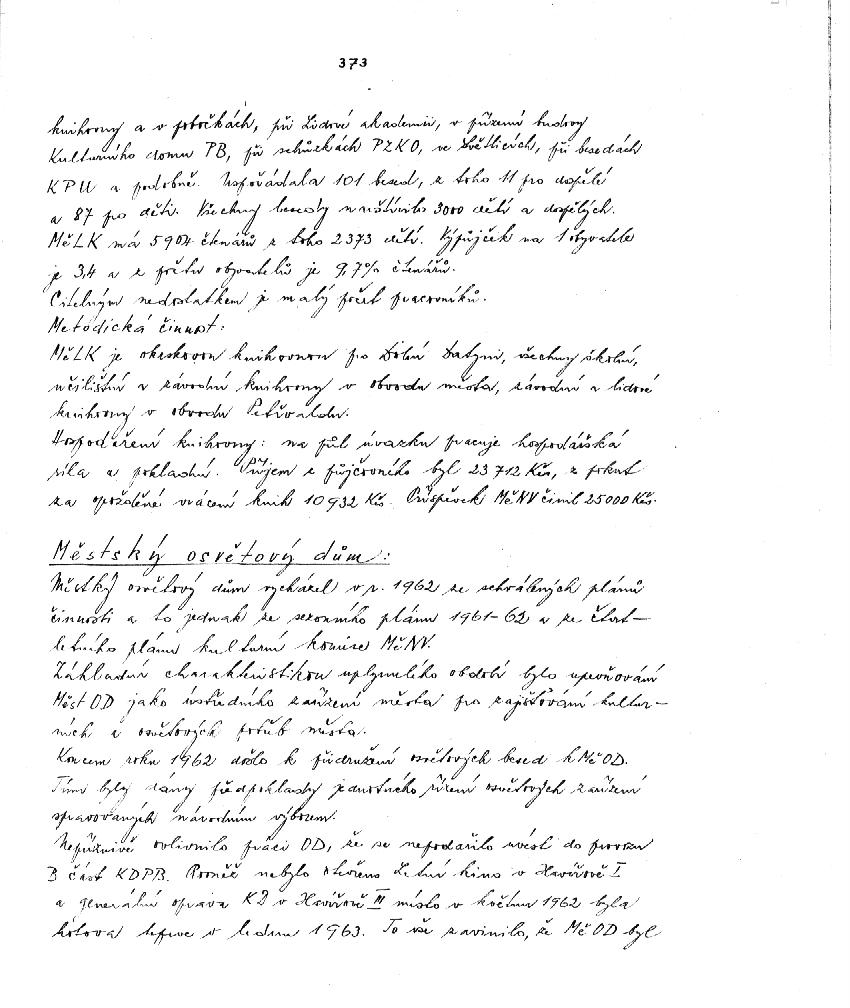 373
knihovny a v pobočkách, při Lidové akademii, v přízemí budovy
Kulturního domu PB, při schůzkách PZKO, ve Světlicích, při besedách
KPU a podobně. Uspořádala 101 besed, z toho 11 pro dospělé
a 87 pro děti. Všechny besedy navštívilo 3000 dětí a dospělých.
MěLK má 5904 čtenářů z toho 2373 dětí. Výpůjček na 1 obyvatele
je 3,4 a z počtu obyvatelů je 9,7% čtenářů.
Citelným nedostatkem je malý počet pracovníků.
Metodická činnost:
MěLK je okrskovou knihovnou pro Dolní Datyni, všechny školní,
učilištní a závodní knihovny v obvodu města, závodní a lidové
knihovny v obvodu Petřvaldu.
Hospodaření knihovny: na půl úvazku pracuje hospodářská
síla a pokladní. Příjem z půjčovního byl 23 712 Kčs, z pokut
za opožděné vrácení knih 10 932 Kčs. Příspěvek MěNV činil 25000 Kčs.
Městský osvětový dům:
Městský osvětový dům vycházel v r. 1962 ze schválených plánů
činnosti a to jednak ze sezonního plánu 1961-62 a ze čtvrt-
letního plánu kulturní komise MěNV.
Základní charakteristikou uplynulého období bylo upevňování
Měst OD jako ústředního zařízení města pro zajišťování kultur-
ních a osvětových potřeb města.
Koncem roku 1962 došlo k přidružení osvětových besed k MěOD.
Tím byly dány předpoklady jednotného řízení osvětových zařízení
spravovaných národním výborem.
Nepříznivě ovlivnilo práci OD, že se nepodařilo uvést do provozu
B část KDPB. Rovněž nebylo otevřeno Letní kino v Havířově I
a generální oprava KD v Havířově III místo v květnu 1962 byla
hotova teprve v lednu 1963. To vše zavinilo, že MěOD byl